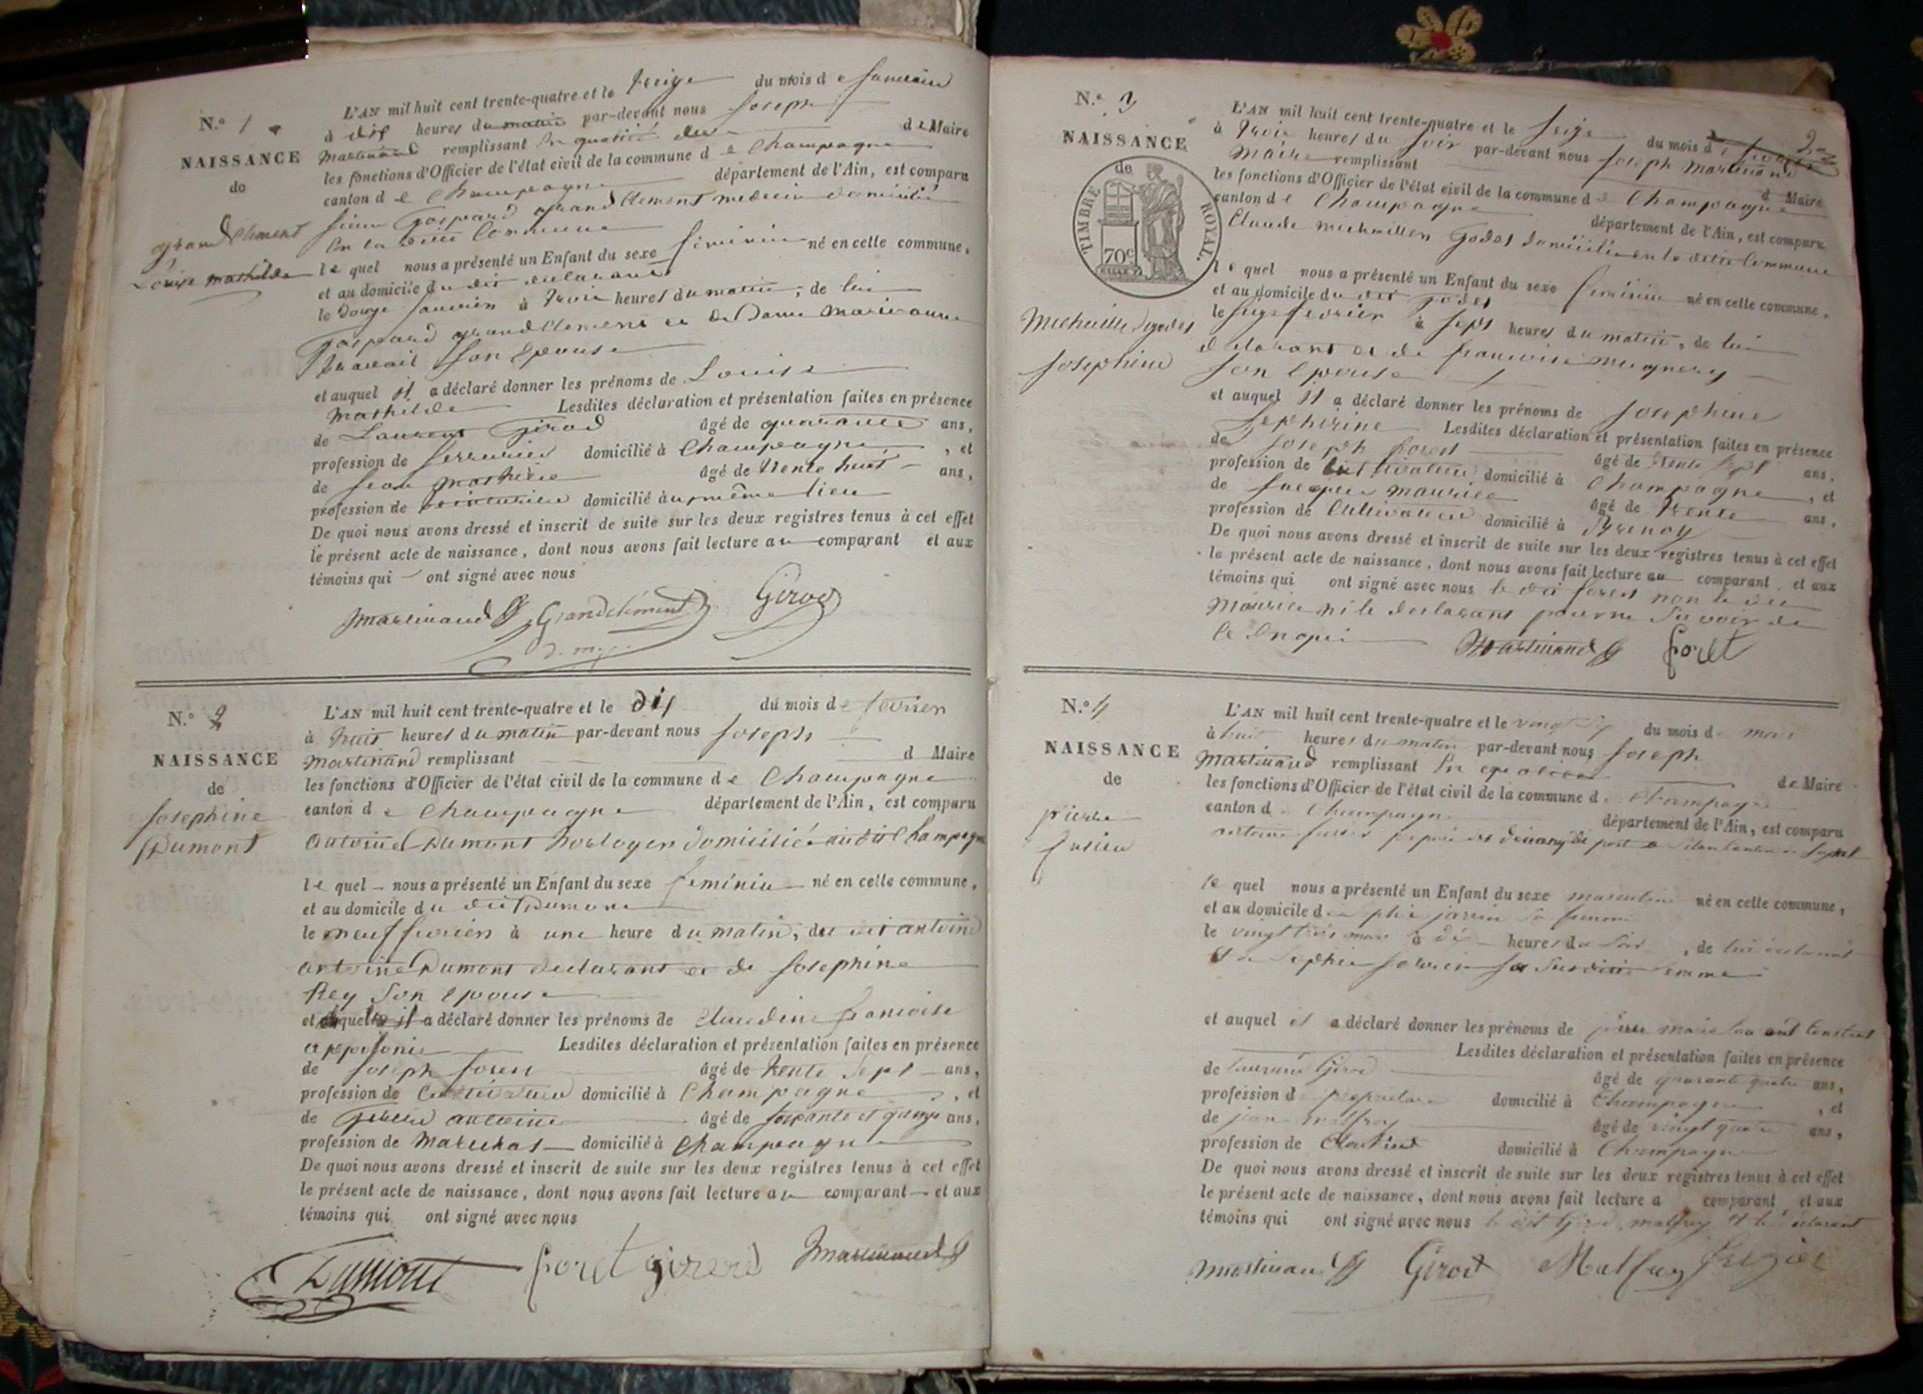 N.º 1
NAISSANCE
de
grand Clement
Louise mathilde
L'AN mil huit cent trente-quatre et le treize du mois de Janvier
à dix heures du matin par-devant nous Joseph
Martinand remplissant en qualité de Maire
les fonctions d'Officier de l'état civil de la commune de Champagne
canton de Champagne département de l'Ain, est comparu
sieur Gaspard grand Clement medecin domicilié
en la dite Commune
lequel nous a présenté un Enfant du sexe féminin né en cette commune,
et au domicile du dit declarant
le douze Janvier à trois heures du matin, de lui
Gaspard grand Clement et de Dame marieanne
travail Son Epouse
et auquel il a déclaré donner les prénoms de Louise
Mathilde Lesdites déclaration et présentation faites en présence
de Laurent Girod âgé de quarante ans,
profession de Serrurier domicilié à Champagne, et
de Jean âgé de trente huit ans,
profession de domicilié au même lieu
De quoi nous avons dressé et inscrit de suite sur les deux registres tenus à cet effet
le présent acte de naissance, dont nous avons fait lecture au comparant et aux
témoins qui ont signé avec nous
Martinand Grandclément Girod
N.º 2
NAISSANCE
de
Josephine
Dumont
L'AN mil huit cent trente-quatre et le dix du mois de fevrier
à huit heures du matin par-devant nous Joseph
Martinand remplissant d Maire
les fonctions d'Officier de l'état civil de la commune de Champagne
canton de Champagne département de l'Ain, est comparu
antoine Dumont horloger domicilié audit Champagne
lequel nous a présenté un Enfant du sexe feminin né en cette commune,
et au domicile du dit Dumont
le neuf fevrier à une heure du matin, du dit antoine
antoine Dumont declarant et de Josephine
Rey Son Epouse
et auquel il a déclaré donner les prénoms de Claudine francoise
appolonie Lesdites déclaration et présentation faites en présence
de Joseph foret âgé de trente Sept ans,
profession de Cultivateur domicilié à Champagne, et
de Gererd antoine âgé de Soixante et quinze ans,
profession de Marechal domicilié à Champagne
De quoi nous avons dressé et inscrit de suite sur les deux registres tenus à cet effet
le présent acte de naissance, dont nous avons fait lecture au comparant et aux
témoins qui ont signé avec nous
Dumont foret girerd Martinand
N.º 3
NAISSANCE
de
TIMBRE ROYAL.
70c
Josephine
L'AN mil huit cent trente-quatre et le Seize du mois d
à trois heures du Soir par-devant nous Joseph Martinand
Maire remplissant d Maire
les fonctions d'Officier de l'état civil de la commune de Champagne
canton de Champagne département de l'Ain, est comparu
Claude michaillon Godet domicilié en la dite Commune
lequel nous a présenté un Enfant du sexe feminin né en cette commune,
et au domicile du dit godet
le Seize fevrier à Sept heures du matin, de lui
declarant et de francoise mugnery
Son Epouse
et auquel il a déclaré donner les prénoms de Josephine
Sepherine Lesdites déclaration et présentation faites en présence
de Joseph foret âgé de trente Sept ans,
profession de Cultivateur domicilié à Champagne, et
de Jacques maurice âgé de trente ans,
profession de Cultivateur domicilié à Brenoz
De quoi nous avons dressé et inscrit de suite sur les deux registres tenus à cet effet
le présent acte de naissance, dont nous avons fait lecture au comparant et aux
témoins qui ont signé avec nous le dit foret non le dit
Maurice ni le declarant pour ne Savoir de
ce Enquis
Martinand foret
N.º 4
NAISSANCE
de
pierre
L'AN mil huit cent trente-quatre et le vingt du mois de mars
à huit heures du matin par-devant nous Joseph
Martinand remplissant En qualité de Maire
les fonctions d'Officier de l'état civil de la commune de Champagne
canton de Champagne département de l'Ain, est comparu
antoine
le quel nous a présenté un Enfant du sexe masculin né en cette commune,
et au domicile d sa femme
le vingt trois mars à dix heures du Soir, de lui declarant
et de Sophie sa Susdite femme
et auquel il a déclaré donner les prénoms de pierre marie
Lesdites déclaration et présentation faites en présence
de laurent Girod âgé de quarante quatre ans,
profession de propriétaire domicilié à Champagne, et
de jean malfroy âgé de vingt quatre ans,
profession de domicilié à Champagne
De quoi nous avons dressé et inscrit de suite sur les deux registres tenus à cet effet
le présent acte de naissance, dont nous avons fait lecture a comparant et aux
témoins qui ont signé avec nous le dit Girod, malfroy et le déclarant
Martinand Girod Malfroy